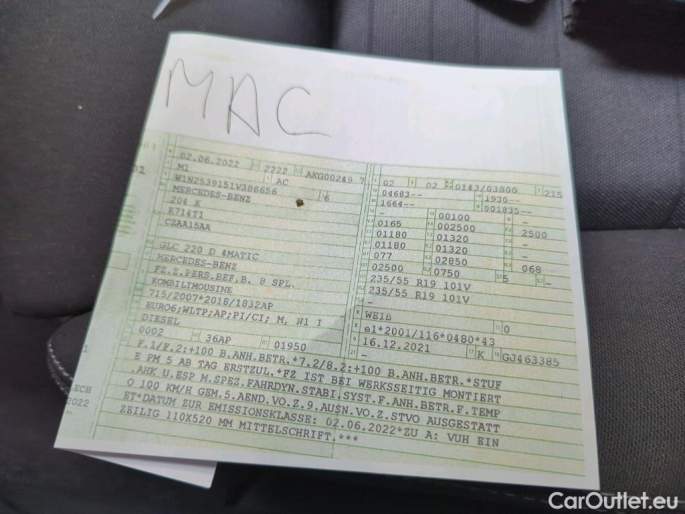 MAC
02.06.2022 2222 AKG00249 7
M1 AC
W1N2539151V386656 6
MERCEDES-BENZ
204 K
K714T1
CZAA15AA
GLC 220 D 4MATIC
MERCEDES-BENZ
FZ.Z.PERS.BEF.B. 8 SPL.
KOMBILIMOUSINE
715/2007*2018/1832AP
EURO6;WLTP;AP;PI/CI; M, N1 I
DIESEL
0002 36AP 01950
02 02 0143/03800 215
04683-- 1930--
1664-- 001835--
- 00100 -
0165 002500 2500
01180 01320 -
01180 01320 -
077 02850 068
02500 0750 5 -
235/55 R19 101V
235/55 R19 101V
-
WEIß 0
e1*2001/116*0480*43
16.12.2021 K GJ463385
-
F.1/F.2:+100 B.ANH.BETR.*7.2/8.2:+100 B.ANH.BETR.*STUF
E PM 5 AB TAG ERSTZUL.*FZ IST BEI WERKSSEITIG MONTIERT
.AHK U.ESP M.SPEZ.FAHRDYN.STABI.SYST.F.ANH.BETR.F.TEMP
O 100 KM/H GEM.5.AEND.VO.Z.9.AUSN.VO.Z.STVO AUSGESTATT
ET*DATUM ZUR EMISSIONSKLASSE: 02.06.2022*ZU A: VUH EIN
ZEILIG 110X520 MM MITTELSCHRIFT.***
2022
CarOutlet.eu